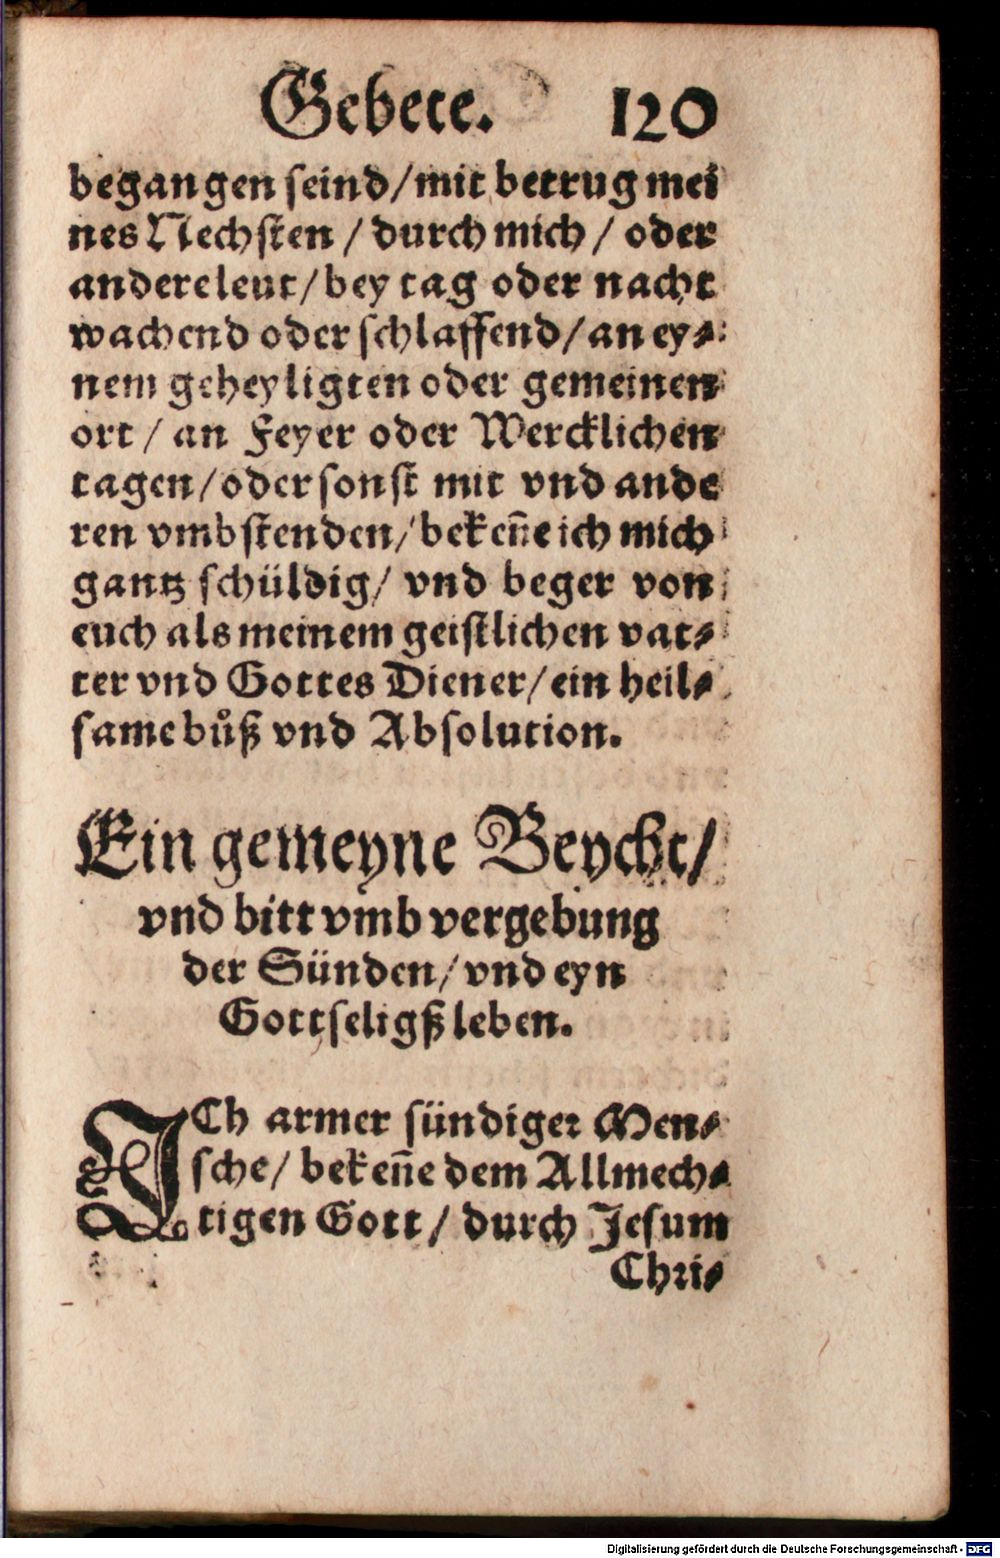 Gebete. 120
begangen seind/mit betrug mei
nes Nechsten / durch mich / oder
andere leut/bey tag oder nacht
wachend oder schlaffend/an ey-
nem geheyligten oder gemeinen
ort / an Feyer oder Wercklichen
tagen/oder sonst mit vnd ande
ren vmbstenden/bekeñe ich mich
gantz schüldig/ vnd beger von
euch als meinem geistlichen vat-
ter vnd Gottes Diener/ein heil-
same bůß vnd Absolution.
Ein gemeyne Beycht/
vnd bitt vmb vergebung
der Sünden/vnd eyn
Gottseligß leben.
ICh armer sündiger Men-
sche/ bekeñe dem Allmech-
tigen Gott/ durch Jesum
Chri-
Digitalisierung gefördert durch die Deutsche Forschungsgemeinschaft - DFG